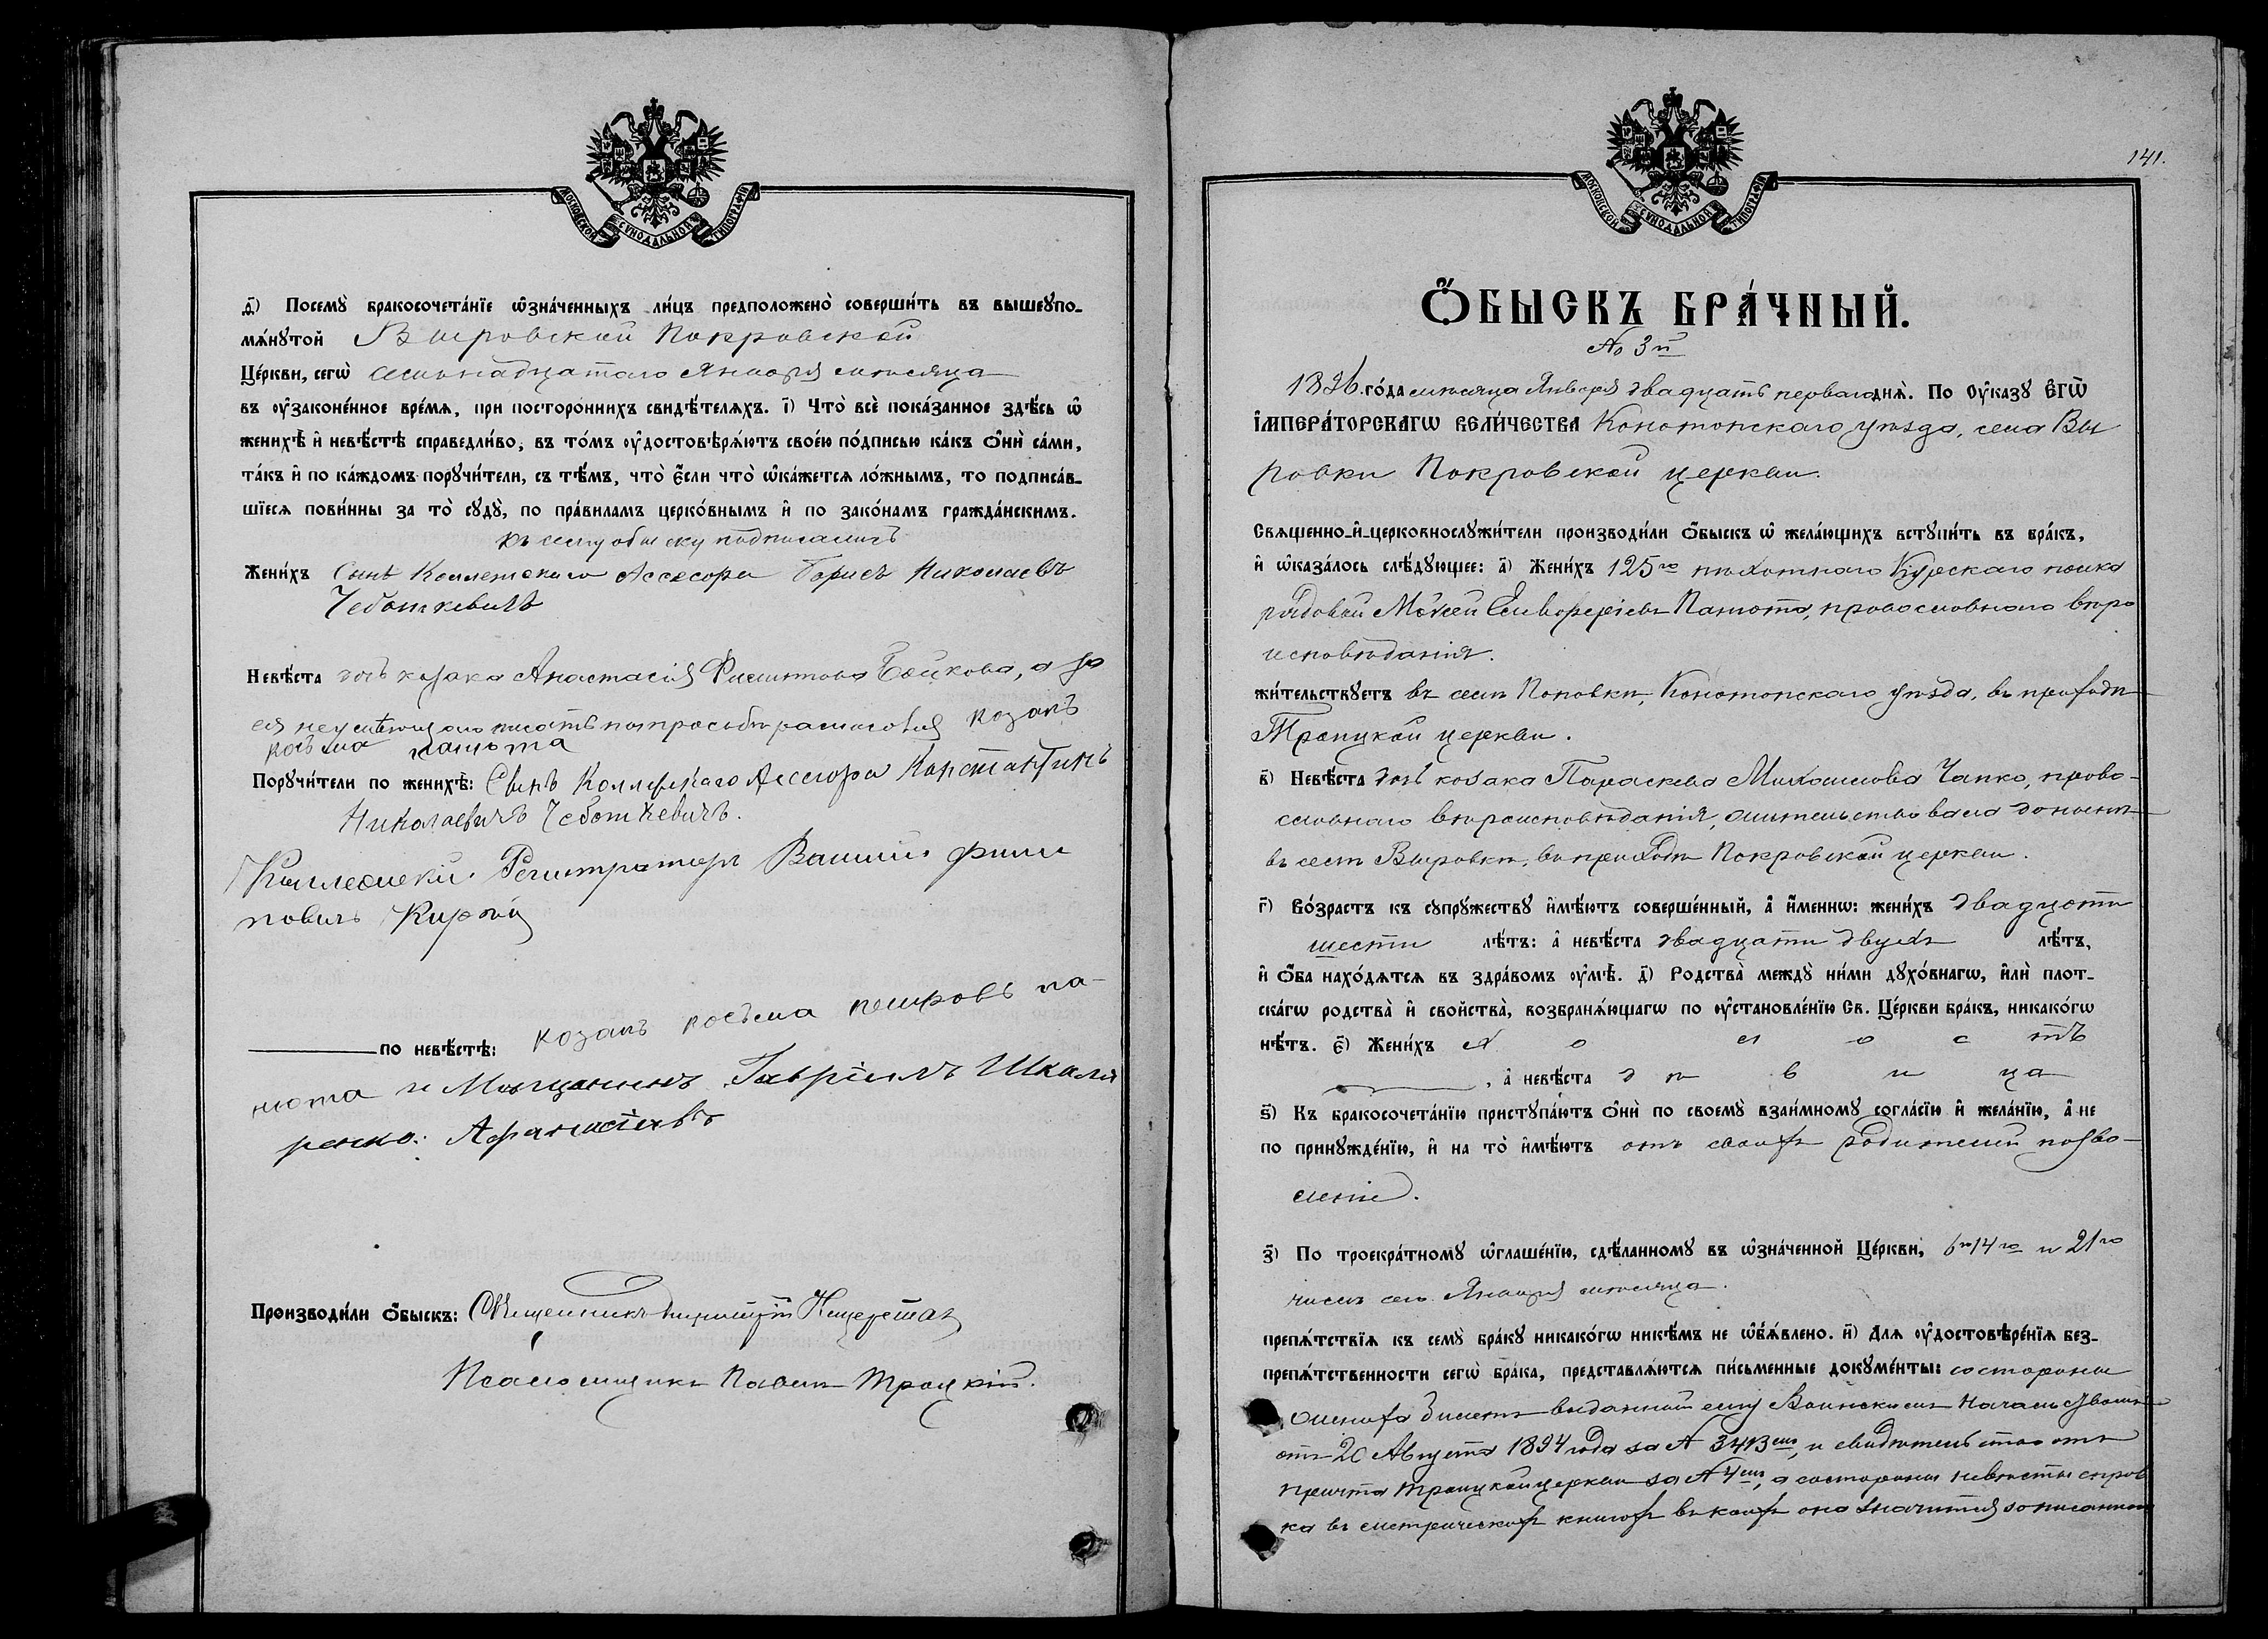 МОСКОВСКОЙ СѴНОДАЛЬНОЙ ТИПОГРАФІИ
Посемꙋ̀ бракосочета́нїе ѡ҆зна́ченныхъ ли́цъ предположено̀ соверши́ть въ вышеꙋпо-
мѧ́нꙋтой Выровской Покровской
Це́ркви, сегѡ̀ семьнадцатаго Января месяца
въ ᲂу҆законе́нное вре́мѧ, при посторо́ннихъ свидѣ́телѧхъ. і҃) Что̀ всѐ пока́занное здѣ́сь ѡ҆
женихѣ̀ и҆ невѣ́стѣ справедли́во, въ то́мъ ᲂу҆достовѣрѧ́ютъ свое́ю по́дписью ка́къ ѻ҆нѝ са́ми,
та́къ и҆ по ка́ждомъ порꙋчи́тели, съ тѣ́мъ, что̀ є҆́сли что̀ ѡ҆ка́жетсѧ ло́жнымъ, то подписа́в-
шїесѧ пови́нны за то̀ сꙋдꙋ̀, по пра́виламъ церко́внымъ и҆ по зако́намъ гражда́нскимъ.
Къ сему обыску подписались
Жени́хъ Сынъ Коллежскаго Ассесора Борисъ Николаевъ
Чеботкевичъ
Невѣ́ста дочь козака Анастасія Бойкова, а за
ея неумѣющую писать по просьбѣ росписался козакъ
косьма панюта
Порꙋчи́тели по женихѣ̀: Сынъ Коллежскаго Ассесора Константинъ
Николаевичъ Чеботкевичъ.
Коллежскій Регистраторъ Василій Фили
повичъ
по невѣ́стѣ: козакъ косьма петровъ па-
нюта и Мѣщанинъ Гавріилъ Шкаля
ренко. Афанасіевъ
Производи́ли ѻ҆́быскъ: Священникъ Димитрій
Псаломщикъ Павелъ Троцкій.
141.
МОСКОВСКОЙ СѴНОДАЛЬНОЙ ТИПОГРАФІИ
Ѻ҆́БЫСКЪ БРА́ЧНЫЙ.
№ 3й
1896 го́да месяца Января двадцать перваго днѧ̀. По Оу҆ка́зꙋ Є҆ГѠ̀
І҆МПЕРА́ТОРСКАГѠ ВЕЛИ́ЧЕСТВА Конотопскаго уѣзда, села Вы
ровки Покровской церкви.
Свѧщенно-и҆-церковнослꙋжи́тели производи́ли ѻ҆́быскъ ѡ҆ жела́ющихъ встꙋпи́ть въ бра́къ,
и҆ ѡ҆каза́лось слѣ́дꙋющее: а҃) Жени́хъ 125го пѣхотнаго Курскаго полка
рядовой Мойсей Елевферіевъ Панюта, православнаго вѣро
исповѣданія.
жи́тельствꙋетъ въ селѣ Поповкѣ, Конотопскаго уѣзда, въ приходѣ
Троицкой церкви.
в҃) Невѣ́ста дочь козака Параскева Михаилова Чапко, право-
славнаго вѣроисповѣданія, жительствовала донынѣ
въ селѣ Выровкѣ, въ приходѣ Покровской церкви.
г҃) Во́зрастъ къ сꙋпрꙋ́жествꙋ и҆мѣ́ютъ соверше́нный, а҆ и҆́меннѡ: жени́хъ двадцати
шести лѣ́тъ: а҆ невѣ́ста двадцати двухъ лѣ́тъ,
и҆ ѻ҆́ба нахо́дѧтсѧ въ здра́вомъ ᲂу҆мѣ̀. д҃) Родства̀ междꙋ̀ ни́ми дꙋхо́внагѡ, и҆лѝ плот-
ска́гѡ родства̀ и҆ свойства̀, возбранѧ́ющагѡ по ᲂу҆становле́нїю Св. Це́ркви бра́къ, никако́гѡ
нѣ́тъ. є҃) Жени́хъ х о л о с тъ
, а҆ невѣ́ста д ѣ в и ца
ѕ҃) Къ бракосочета́нїю пристꙋпа́ютъ ѻ҆нѝ по своемꙋ̀ взаи́мномꙋ согла́сїю и҆ жела́нїю, а҆ не
по принꙋжде́нїю, и҆ на то̀ и҆мѣ́ютъ отъ своихъ родителей позво-
леніе.
з҃) По троекра́тномꙋ ѡ҆глаше́нїю, сдѣ́ланномꙋ въ ѡ҆зна́ченной Це́ркви, 6го 14го и 21го
числъ сего Января месяца.
препѧ́тствїѧ къ семꙋ̀ бра́кꙋ никако́гѡ никѣ́мъ не ѡ҆б̾ѧ́влено. и҃) Для ᲂу҆достовѣре́нїѧ без-
препѧ́тственности сегѡ̀ бра́ка, представлѧ́ютсѧ пи́сьменные докꙋме́нты: со стороны
жениха билетъ выданный ему Воинскимъ Начальствомъ
отъ 20 Августа 1894 года за № 3413емъ, и свидѣтельство отъ
причта Троицкой церкви за № 4емъ, а со стороны невѣсты справ
ка въ метрическихъ книгахъ въ коихъ она значится записанною